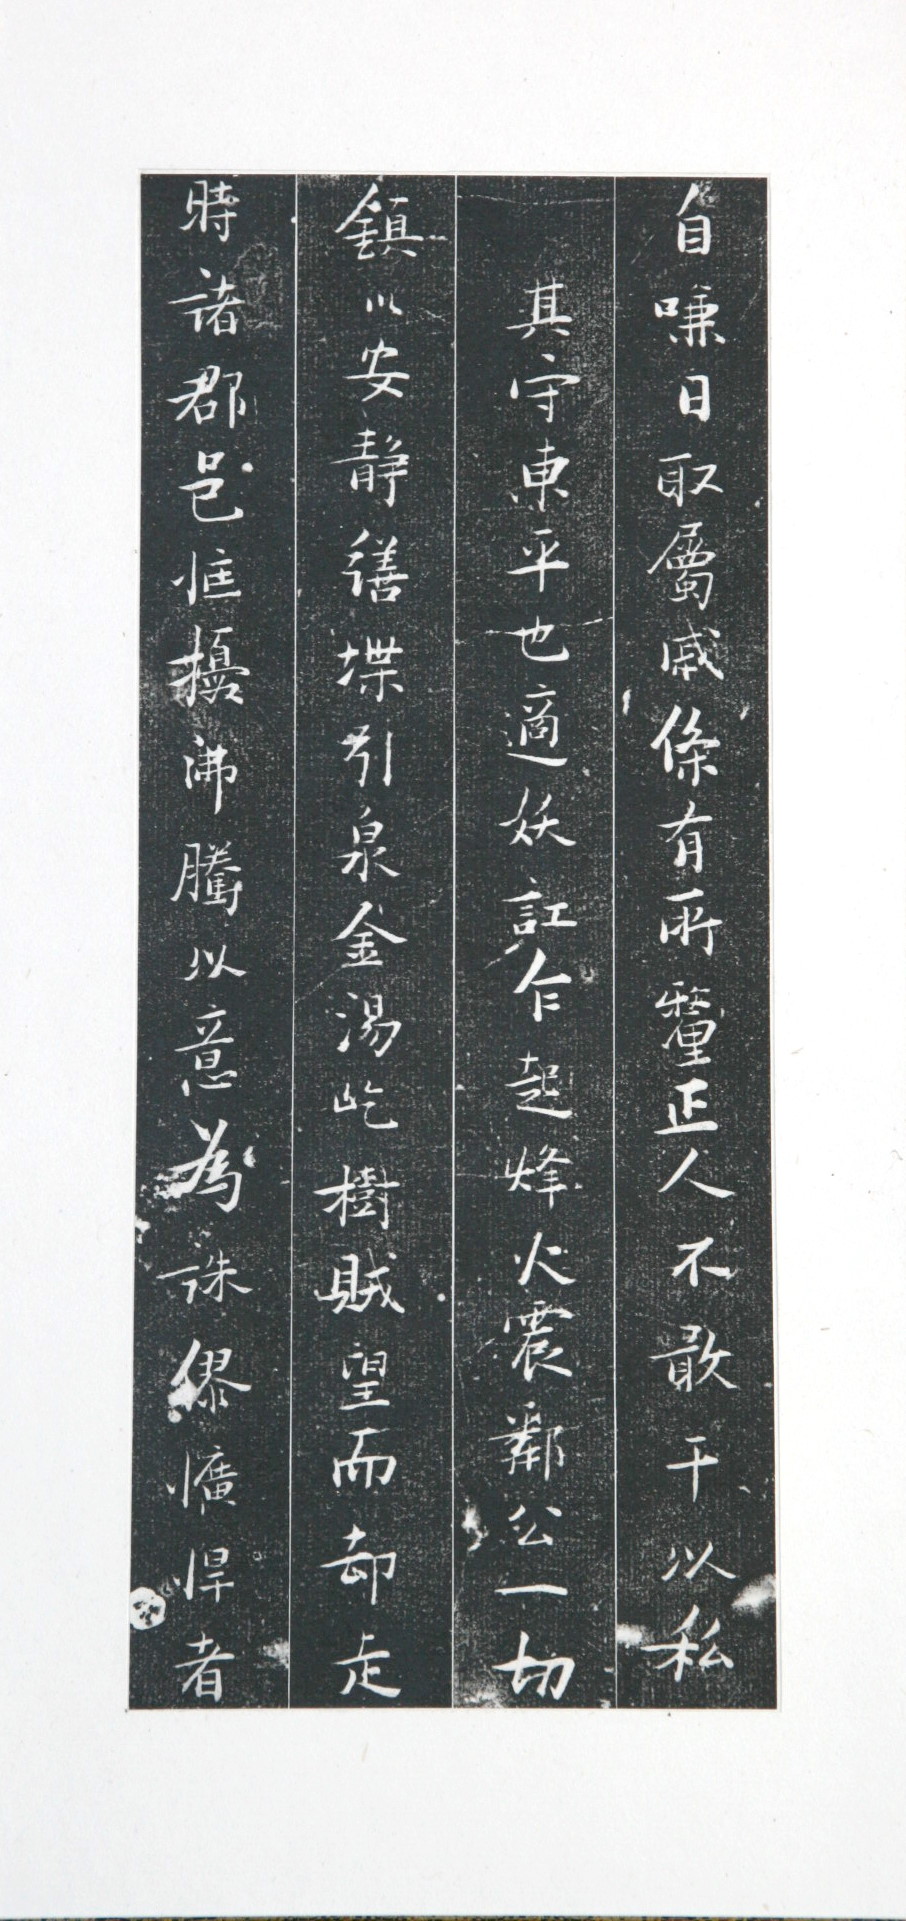 自嗛日取屬戚條有所釐正人不敢干以私
其守東平也適妖訌乍起烽火震鄰公一切
鎮以安靜繕堞引泉金湯屹樹賊望而却走
時諸郡邑恇擾沸騰以意為誅僇懭悍者